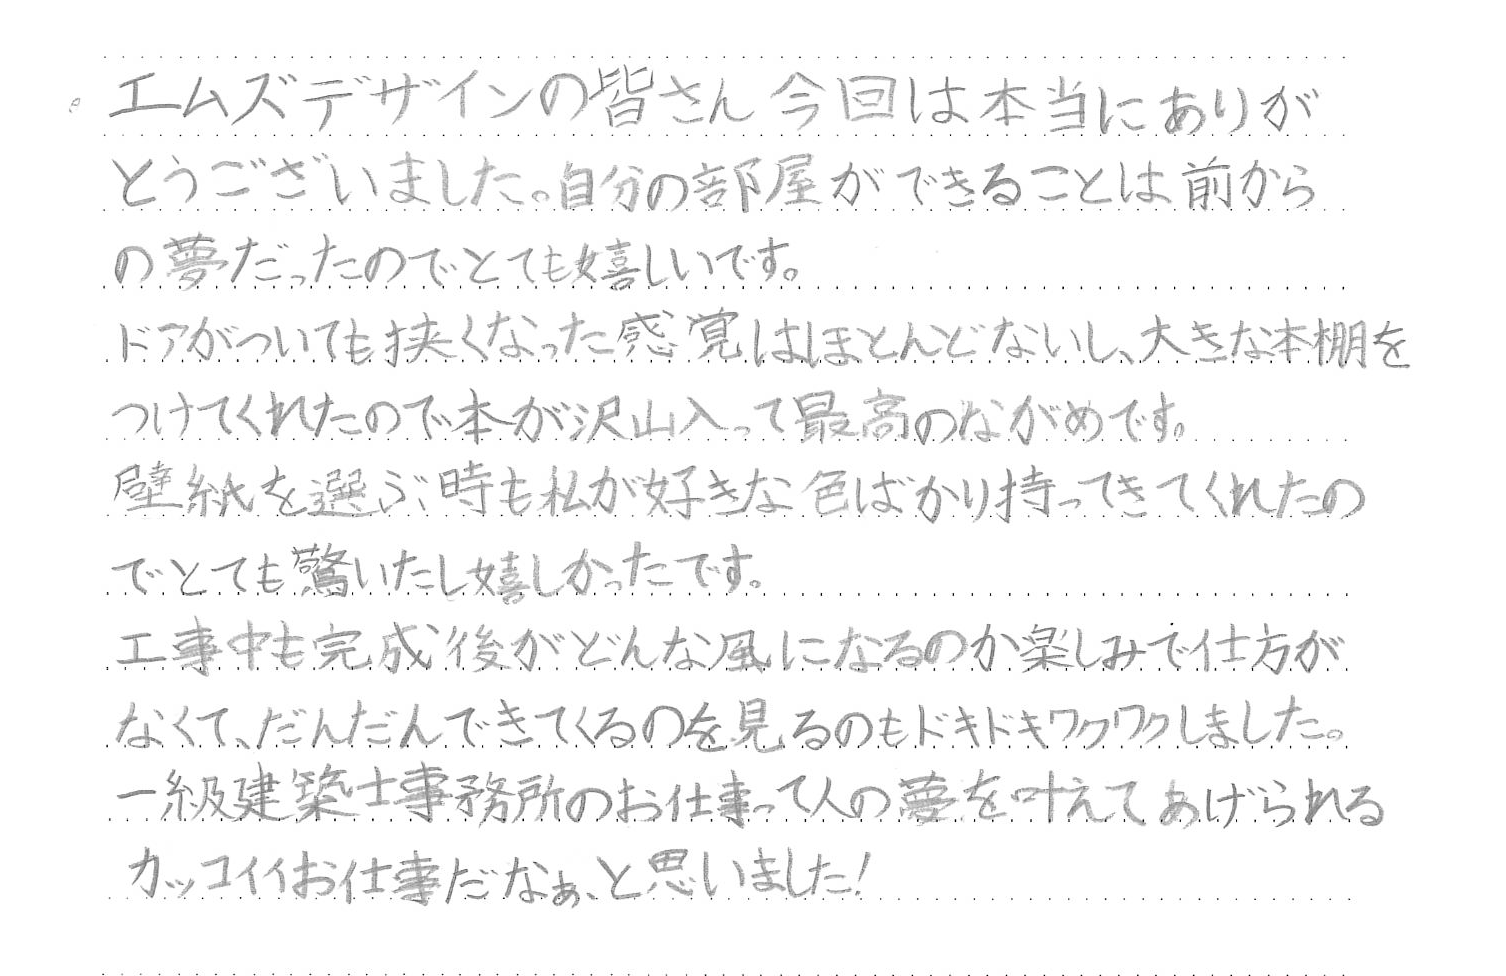 エムズデザインの皆さん 今回は本当にありが
とうございました。自分の部屋ができることは前から
の夢だったのでとても嬉しいです。
ドアがついても挟くなった感覚はほとんどないし、大きな本棚を
つけてくれたので本が沢山入って最高のながめです。
壁紙を選ぶ時も私が好きな色ばかり持ってきてくれたの
でとても驚いたし嬉しかったです。
工事中も完成後がどんな風になるのか楽しみで仕方が
なくて、だんだんできてくるのを見るのもドキドキワクワクしました。
一級建築士事務所のお仕事って人の夢を叶えてあげられる
カッコイイお仕事だなぁ、と思いました!